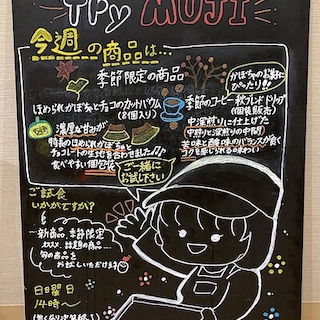 Try MUJI
今週の商品は…
季節限定の商品
かぼちゃのお菓子に
ぴったり!!
ほめられかぼちゃとチョコのカットバウム
(8個入り)
濃厚な甘みが
特長のほめられかぼちゃと
チョコレートの生地を合わせました!!
食べやすい個包装
季節のコーヒー 秋ブレンド ドリップ
(個装販売)
中深煎りに仕上げた
中煎りと深煎りの中間
苦味と酸味のバランスが良く
コクを感じられる味わい
ご一緒に
お試し下さい
ご試食
いかがですか?
新商品、季節限定
オススメ、話題の商品…
旬の商品を
お試しいただけます
日曜日
14時〜